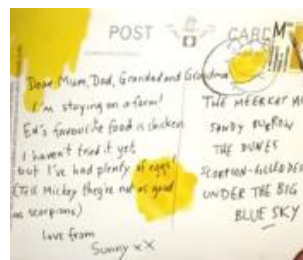 POST CARD
Dear Mum, Dad, Grandad and Grandma
I'm staying on a farm!
Ed's favourite food is chicken
I haven't tried it yet
but I've had plenty of eggs!
(Tell Mickey they're not as good
as scorpions)
love from
Sunny xx
THE MEERKAT
SANDY BURROW
THE DUNES
UNDER THE BIG
BLUE SKY